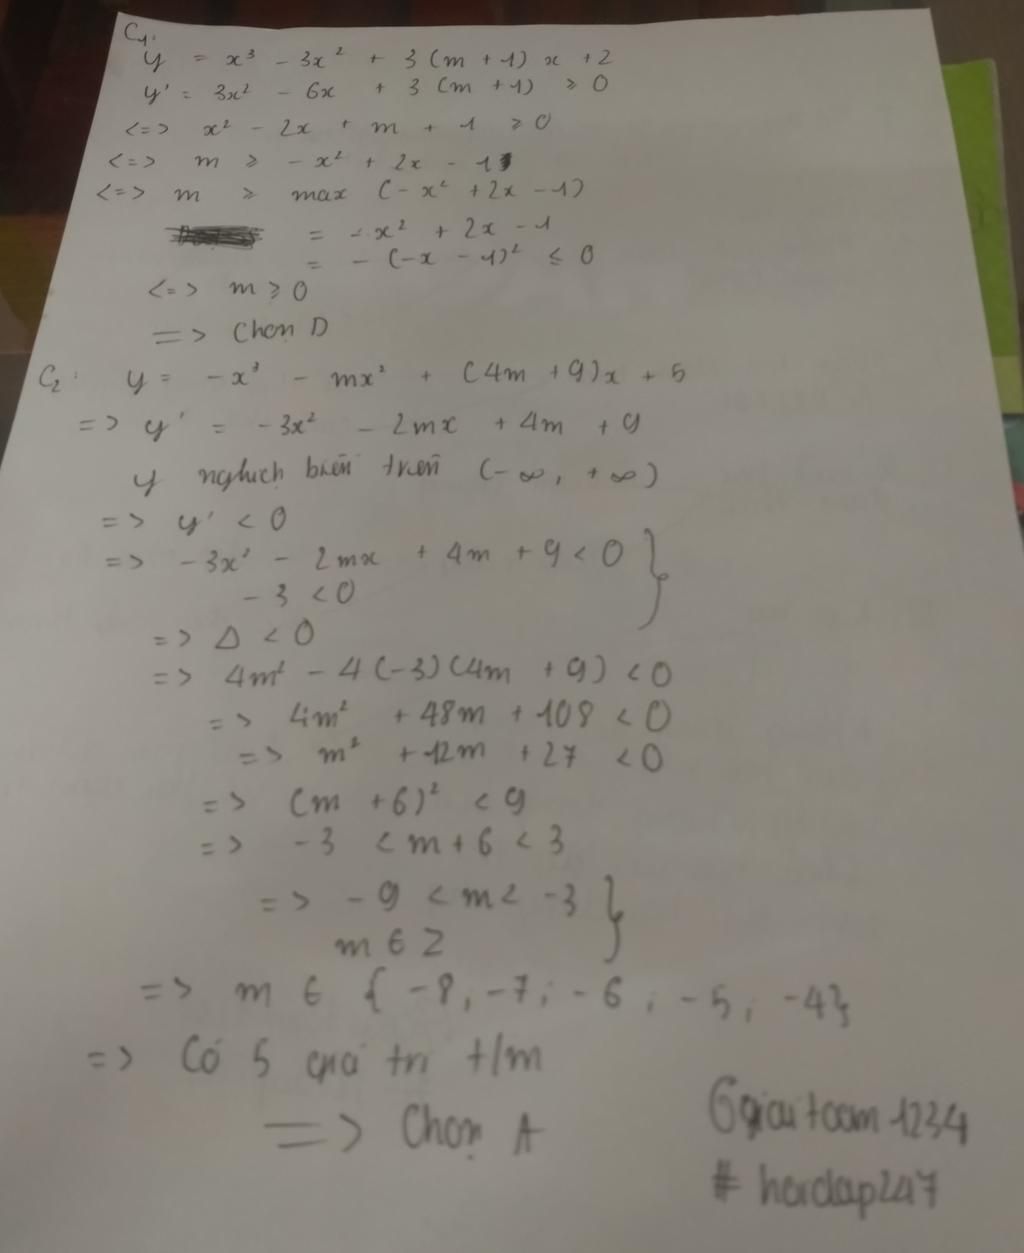 C1:
y = x³ - 3x² + 3(m + 1)x + 2
y' = 3x² - 6x + 3(m + 1) ≥ 0
<=> x² - 2x + m + 1 ≥ 0
<=> m ≥ -x² + 2x - 1
<=> m ≥ max (-x² + 2x - 1)
= -x² + 2x - 1
= -(-x - 1)² ≤ 0
<=> m ≥ 0
=> Chọn D
C2: y = -x³ - mx² + (4m + 9)x + 5
=> y' = -3x² - 2mx + 4m + 9
y nghịch biến trên (-∞, +∞)
=> y' < 0
=> -3x² - 2mx + 4m + 9 < 0 }
-3 < 0
=> Δ < 0
=> 4m² - 4(-3)(4m + 9) < 0
=> 4m² + 48m + 108 < 0
=> m² + 12m + 27 < 0
=> (m + 6)² < 9
=> -3 < m + 6 < 3
=> -9 < m < -3 }
m ∈ Z
=> m ∈ {-8; -7; -6; -5; -4}
=> Có 5 giá trị t/m
=> Chọn A
Ggiaitoam1234
# hoidap247